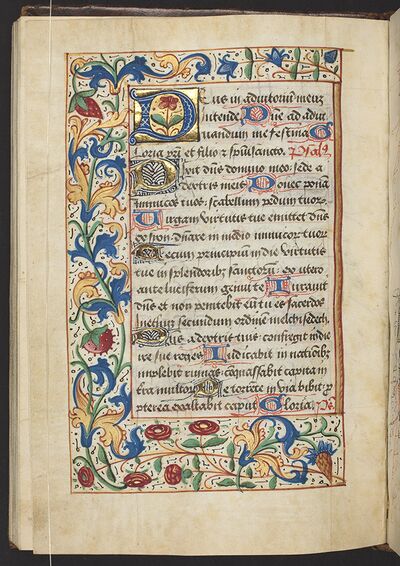 Deus in adiutoriũ meuz
intende Dñe ad adiu
uandum me festina G
loria pr̃i et filio z spũisancto. Psalꝰ
Dixit dñs domino meo: sede a
dextris meis Donec ponã
inimicos tuos: scabellum pedum tuorꝫ
Virgam virtutis tue emittet dñs
ex syon: dñare in medio inimicorꝫ tuorꝫ
Tecum principium in die virtutis
tue in splendoribꝫ sanctorũ: ex utero
ante luciferum genui te Iurauit
dñs et non penitebit eũ: tu es sacerdos
secundum ordinẽ melchisedech
Dñs a dextris tuis: confregit in die
ire sue reges Iudicabit in nationibꝫ
implebit ruinas: conquassabit capita in
terra multorꝫ De torrente in via bibit: p
pterea exaltabit caput Gloria. Ps.